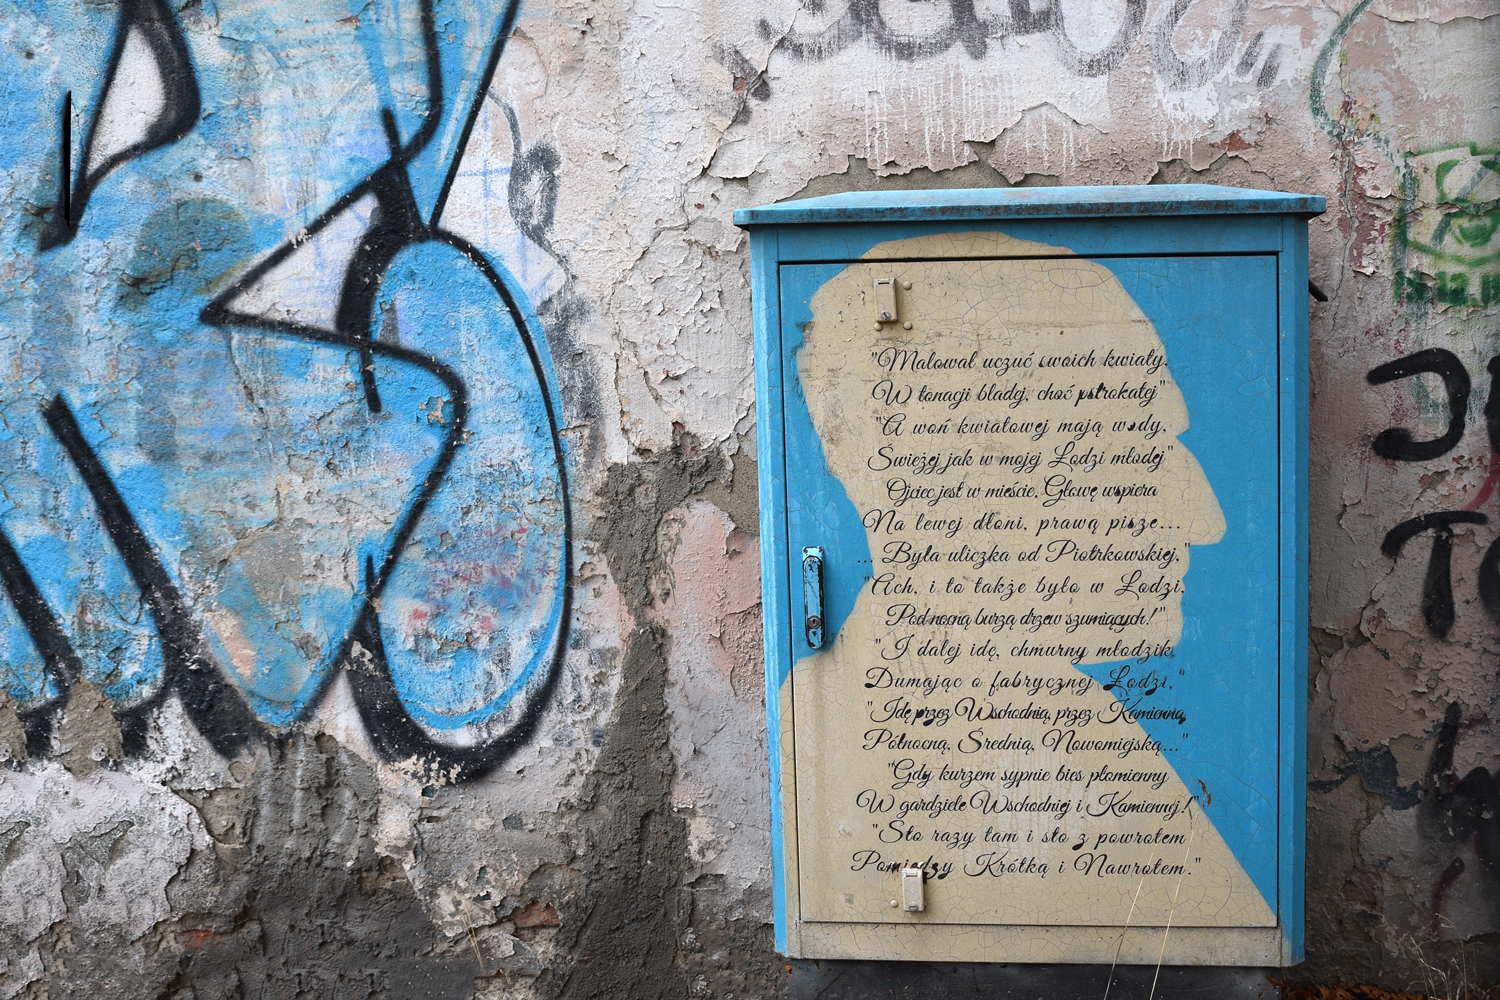 "Malował uczuć swoich kwiaty.
W tonacji bladej, choć pstrokatej"
"A woń kwiatowej mają wody,
Świeżej jak w mojej Łodzi młodej"
Ojciec jest w mieście. Głowę wspiera
Na lewej dłoni, prawą pisze...
... Była uliczka od Piotrkowskiej,"
"Ach, i to także było w Łodzi,
Pod nocną burzą drzew szumiących!"
"I dalej idę, chmurny młodzik,
Dumając o fabrycznej Łodzi,"
"Idę przez Wschodnią, przez Kamienną,
Północną, Średnią, Nowomiejską..."
"Gdy kurzem sypnie bies płomienny
W gardziele Wschodniej i Kamiennej!"
"Sto razy tam i sto z powrotem
Pomiędzy Krótką i Nawrotem."